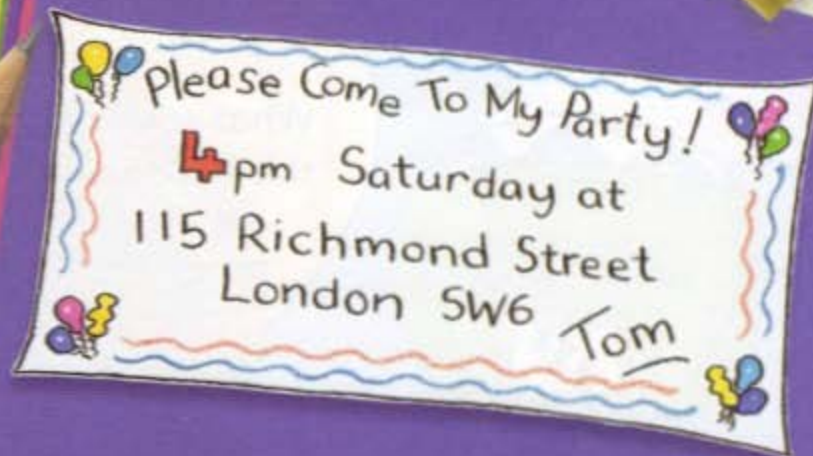 Please Come To My Party!
4pm Saturday at
115 Richmond Street
London SW6
Tom